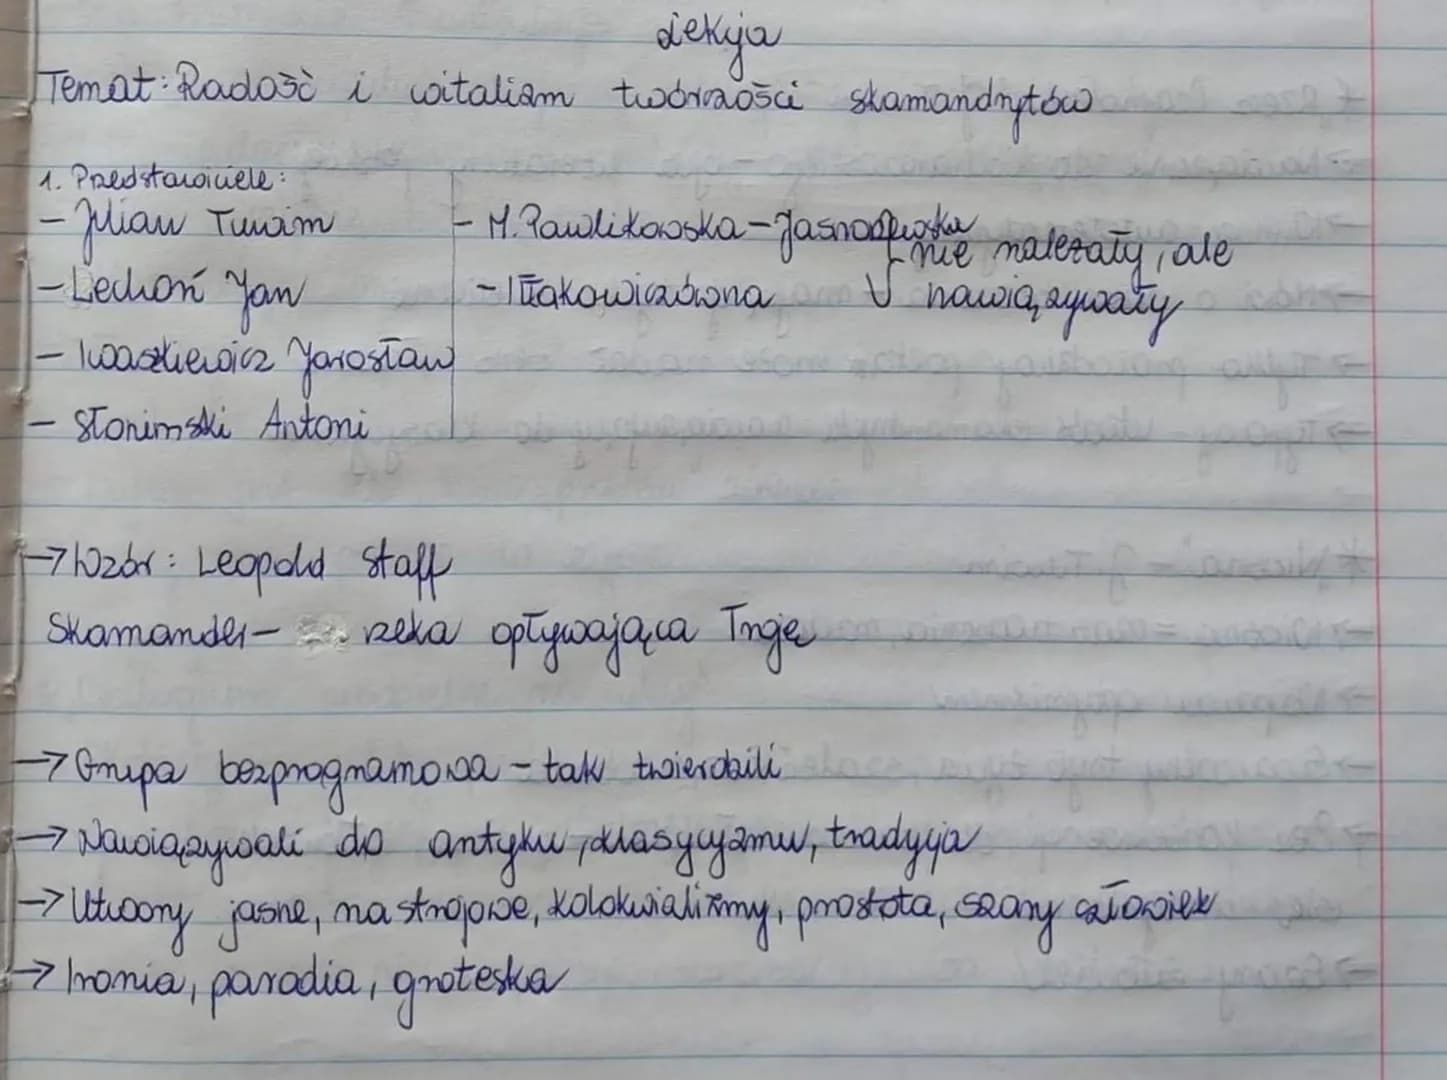 Lekcja
Temat: Radość i witalizm twórczości skamandrytów
1. Przedstawiciele:
- Julian Tuwim
- Lechoń Jan
- Iwaszkiewicz Jarosław
- Słonimski Antoni
- M. Pawlikowska-Jasnorzewska
- Iłłakowiczówna
- nie należały, ale
nawiązywały
→ Wzór: Leopold Staff
Skamander - rzeka opływająca Troję
→ Grupa bezprogramowa - tak twierdzili
→ Nawiązywali do antyku, klasycyzmu, tradycja
→ Utwory jasne, nastrojowe, kolokwializmy, prostota, szary człowiek
→ Ironia, parodia, groteska